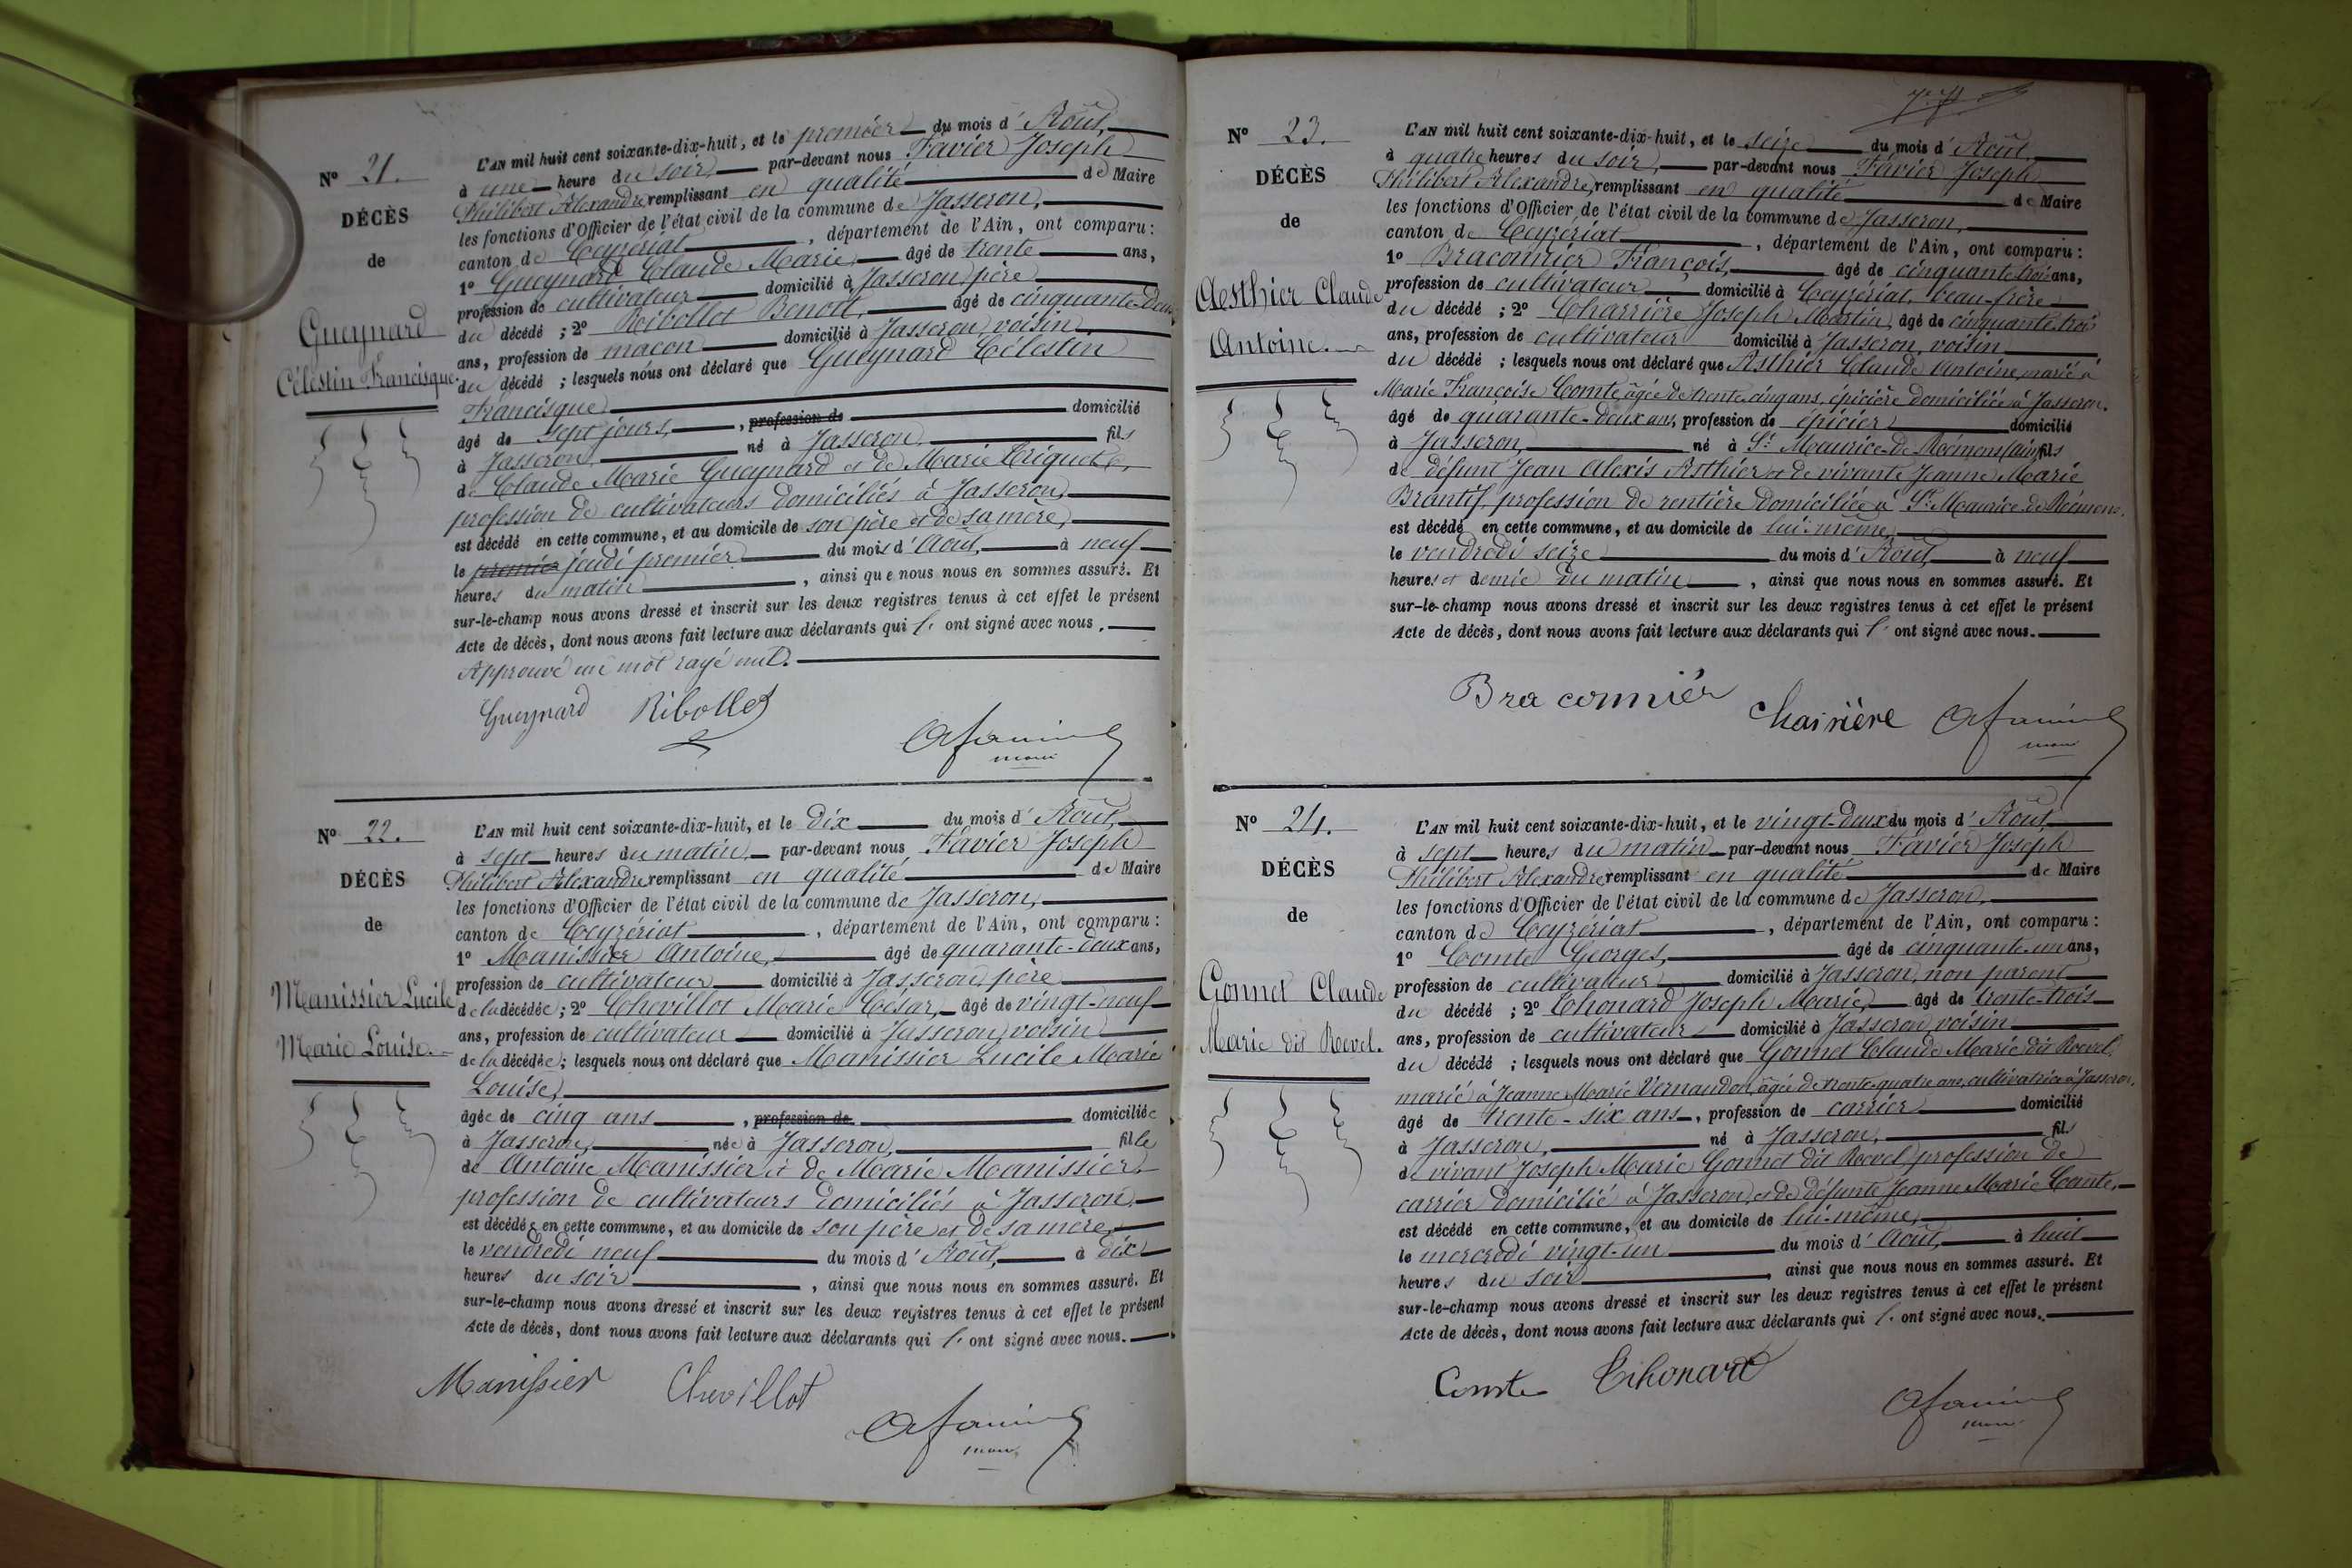 Nº 21.
DÉCÈS
de
Gueynard
Célestin Francisque.
L'AN mil huit cent soixante-dix-huit, et le premier du mois d'Août,
à une heure du soir, par-devant nous Favier Joseph
Philibert Alexandre, remplissant en qualité de Maire
les fonctions d'Officier de l'état civil de la commune de Jasseron,
canton de Ceyzériat, département de l'Ain, ont comparu :
1º Gueynard Claude Marie, âgé de trente ans,
profession de cultivateur domicilié à Jasseron, père
du décédé ; 2º Ribollet Benoît, âgé de cinquante-deux
ans, profession de maçon domicilié à Jasseron, voisin,
du décédé ; lesquels nous ont déclaré que Gueynard Célestin
Francisque
âgé de sept jours, , profession de domicilié
à Jasseron, né à Jasseron, fils
de Claude Marie Gueynard et de Marie
profession de cultivateurs domiciliés à Jasseron,
est décédé en cette commune, et au domicile de son père et de sa mère,
le premier jeudi premier du mois d'Août, à neuf
heures du matin , ainsi que nous nous en sommes assuré. Et
sur-le-champ nous avons dressé et inscrit sur les deux registres tenus à cet effet le présent
Acte de décès, dont nous avons fait lecture aux déclarants qui l' ont signé avec nous.
Approuvé un mot rayé nul.
Gueynard Ribollet
maire
Nº 22.
DÉCÈS
de
Manissier Lucile
Marie Louise.
L'AN mil huit cent soixante-dix-huit, et le dix du mois d'Août,
à sept heures du matin, par-devant nous Favier Joseph
Philibert Alexandre, remplissant en qualité de Maire
les fonctions d'Officier de l'état civil de la commune de Jasseron,
canton de Ceyzériat, département de l'Ain, ont comparu :
1º Manissier Antoine, âgé de quarante-deux ans,
profession de cultivateur domicilié à Jasseron, père
de la décédée ; 2º Chevillot Marie César, âgé de vingt-neuf
ans, profession de cultivateur domicilié à Jasseron, voisin
de la décédée ; lesquels nous ont déclaré que Manissier Lucile Marie
Louise,
âgée de cinq ans , profession de domiciliée
à Jasseron, née à Jasseron, fille
de Antoine Manissier et de Marie Manissier,
profession de cultivateurs domiciliés à Jasseron,
est décédée en cette commune, et au domicile de son père et de sa mère,
le vendredi neuf du mois d'Août, à dix
heures du soir , ainsi que nous nous en sommes assuré. Et
sur-le-champ nous avons dressé et inscrit sur les deux registres tenus à cet effet le présent
Acte de décès, dont nous avons fait lecture aux déclarants qui l' ont signé avec nous.
Manissier Chevillot
maire
Nº 23.
DÉCÈS
de
Aesthier Claude
Antoine.
L'AN mil huit cent soixante-dix-huit, et le seize du mois d'Août,
à quatre heures du soir, par-devant nous Favier Joseph
Philibert Alexandre, remplissant en qualité de Maire
les fonctions d'Officier de l'état civil de la commune de Jasseron,
canton de Ceyzériat, département de l'Ain, ont comparu :
1º Braconnier François, âgé de cinquante-trois ans,
profession de cultivateur domicilié à Ceyzériat, beau-frère
du décédé ; 2º Charrière Joseph Martin, âgé de cinquante-trois
ans, profession de cultivateur domicilié à Jasseron, voisin
du décédé ; lesquels nous ont déclaré que Asthier Claude Antoine, marié à
Marie Françoise Comte, âgée de trente-cinq ans, épicière domiciliée à Jasseron,
âgé de quarante-deux ans, profession de épicier domicilié
à Jasseron, né à St Maurice-de-Rémens (ain), fils
de défunt Jean Alexis Asthier et de vivante Jeanne Marie
Brantif, profession de rentière domiciliée à St Maurice de Rémens.
est décédé en cette commune, et au domicile de lui-même,
le vendredi seize du mois d'Août, à neuf
heures et demie du matin , ainsi que nous nous en sommes assuré. Et
sur-le-champ nous avons dressé et inscrit sur les deux registres tenus à cet effet le présent
Acte de décès, dont nous avons fait lecture aux déclarants qui l' ont signé avec nous.
Braconnier Charrière
maire
Nº 24.
DÉCÈS
de
Gonnet Claude
Marie dit Revel.
L'AN mil huit cent soixante-dix-huit, et le vingt-deux du mois d'Août,
à sept heures du matin par-devant nous Favier Joseph
Philibert Alexandre, remplissant en qualité de Maire
les fonctions d'Officier de l'état civil de la commune de Jasseron,
canton de Ceyzériat, département de l'Ain, ont comparu :
1º Comte Georges, âgé de cinquante-un ans,
profession de cultivateur domicilié à Jasseron, non parent
du décédé ; 2º Thonard Joseph Marie, âgé de trente-trois
ans, profession de cultivateur domicilié à Jasseron, voisin
du décédé ; lesquels nous ont déclaré que Gonnet Claude Marie dit Revel,
marié à Jeanne Marie Vernaudon, âgée de trente-quatre ans, cultivatrice à Jasseron,
âgé de trente-six ans, profession de carrier domicilié
à Jasseron, né à Jasseron, fils
de vivant Joseph Marie Gonnet dit Revel, profession de
carrier domicilié à Jasseron, et de défunte Jeanne Marie Comte,
est décédé en cette commune, et au domicile de lui-même,
le mercredi vingt-un du mois d'Août, à huit
heures du soir , ainsi que nous nous en sommes assuré. Et
sur-le-champ nous avons dressé et inscrit sur les deux registres tenus à cet effet le présent
Acte de décès, dont nous avons fait lecture aux déclarants qui l' ont signé avec nous.
Comte Thonard
maire